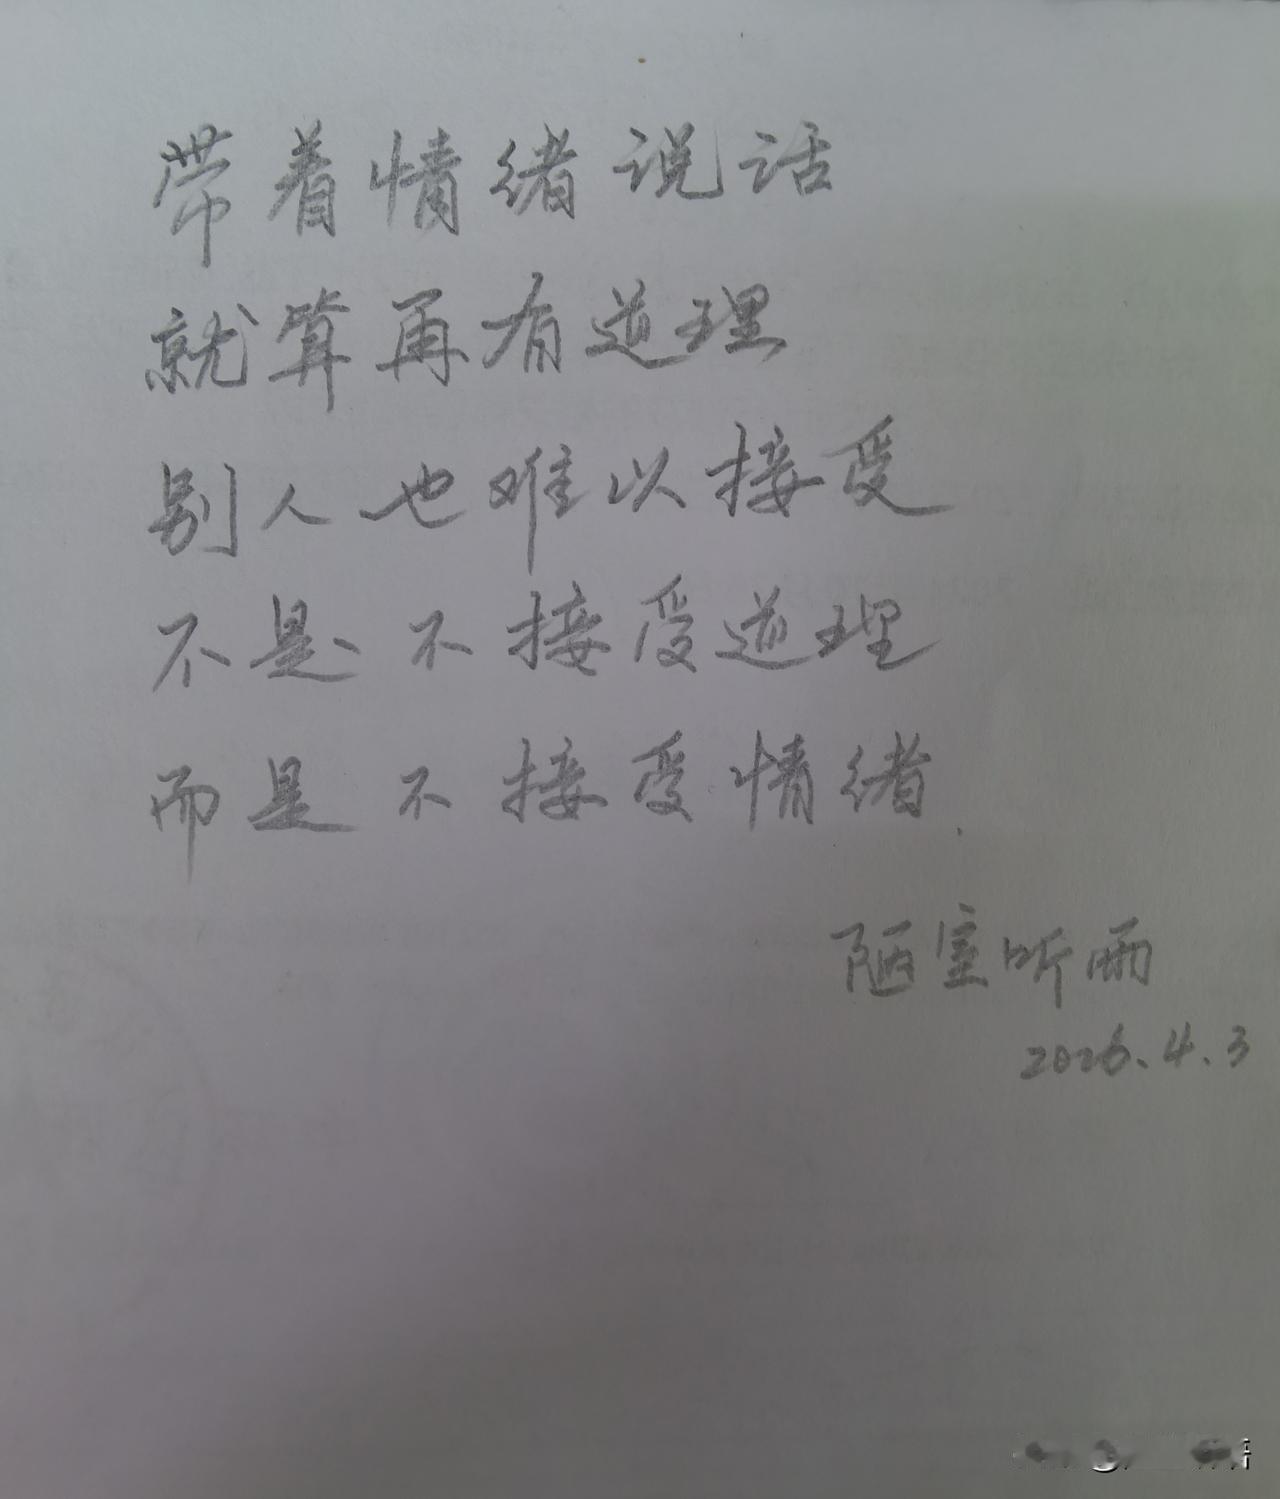 带着情绪说话
就算再有道理
别人也难以接受
不是不接受道理
而是不接受情绪.
陋室听雨
2026.4.3